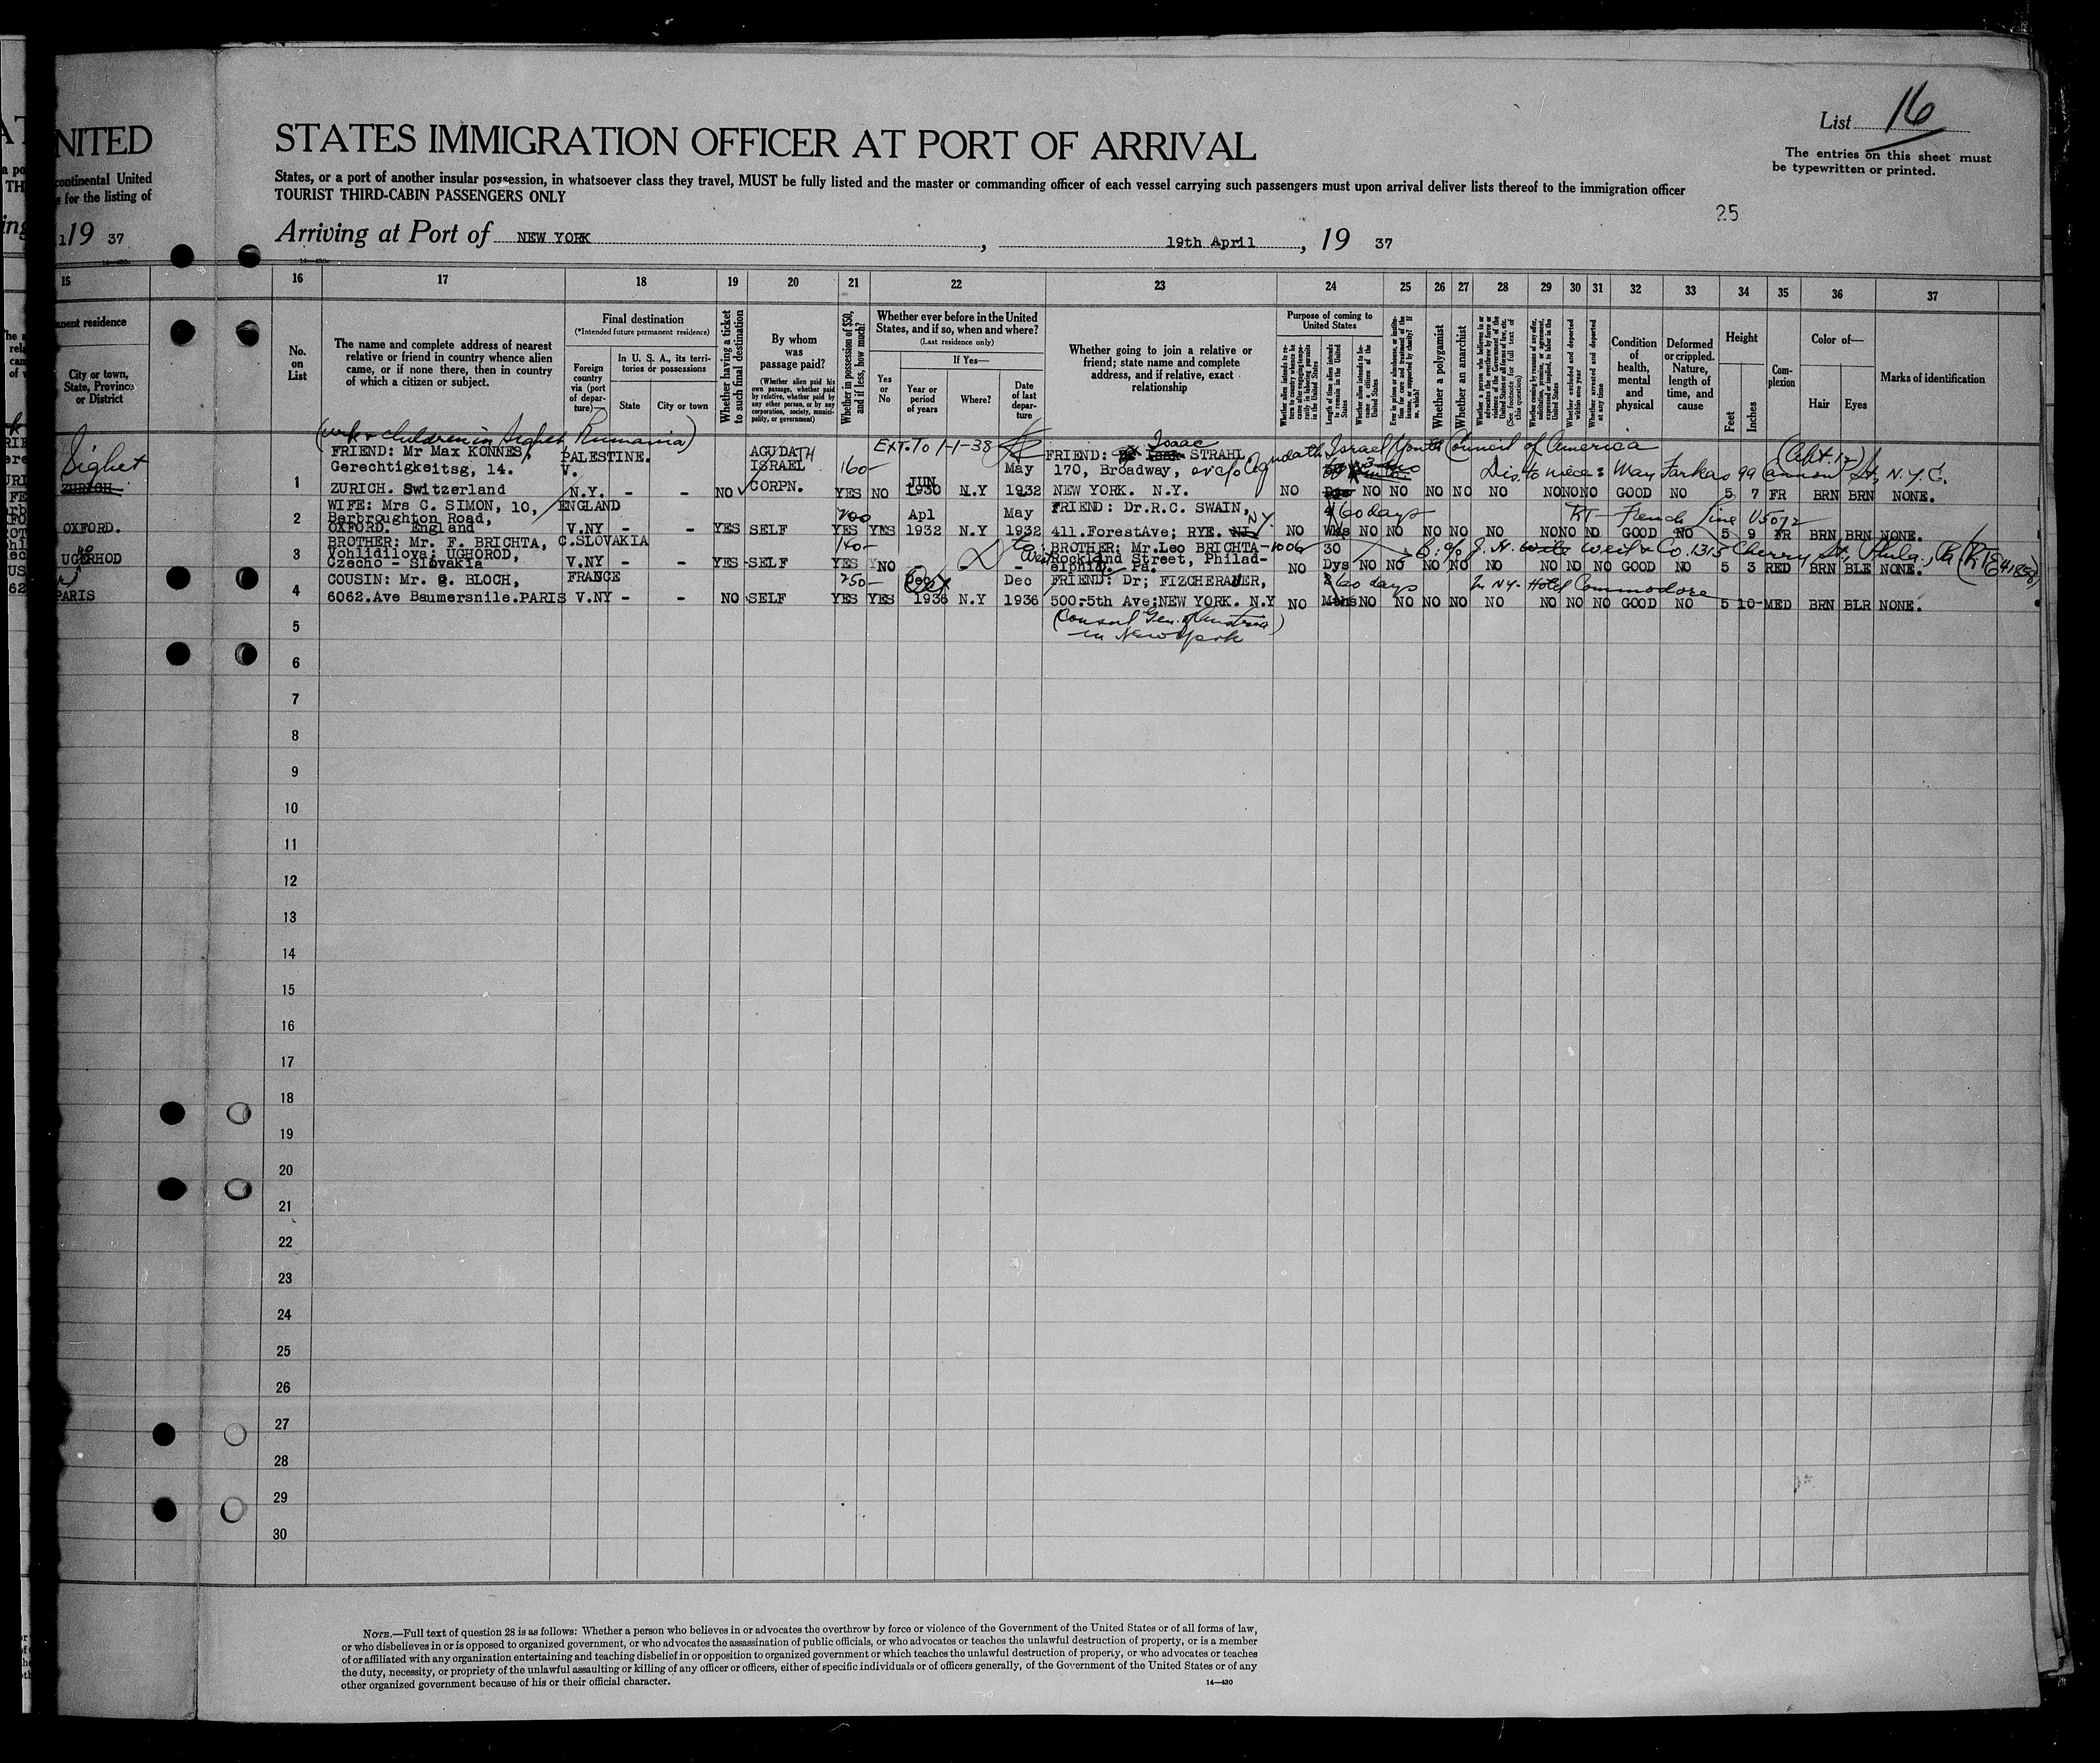 List 16
The entries on this sheet must
be typewritten or printed.
NITED
STATES IMMIGRATION OFFICER AT PORT OF ARRIVAL
continental United
for the listing of
States, or a port of another insular possession, in whatsoever class they travel, MUST be fully listed and the master or commanding officer of each vessel carrying such passengers must upon arrival deliver lists thereof to the immigration officer
TOURIST THIRD-CABIN PASSENGERS ONLY
25
19 37
Arriving at Port of NEW YORK, 19th April, 19 37
15 16 17 18 19 20 21 22 23 24 25 26 27 28 29 30 31 32 33 34 35 36 37
anent residence
City or town,
State, Province
or District
No.
on
List
The name and complete address of nearest
relative or friend in country whence alien
came, or if none there, then in country
of which a citizen or subject.
Final destination
(*Intended future permanent residence)
Foreign
country
via (port
of depar-
ture)
In U. S. A., its terri-
tories or possessions
State
City or town
Whether having a ticket
to such final destination
By whom
was
passage paid?
(Whether alien paid his
own passage, whether paid
by relative, whether paid by
any other person, or by any
corporation, society, munici-
pality, or government)
Whether in possession of $50,
and if less, how much?
Whether ever before in the United
States, and if so, when and where?
(Last residence only)
Yes
or
No
If Yes—
Year or
period
of years
Where?
Date
of last
depar-
ture
Whether going to join a relative or
friend; state name and complete
address, and if relative, exact
relationship
Purpose of coming to
United States
Whether a polygamist
Whether an anarchist
Condition
of
health,
mental
and
physical
Deformed
or crippled.
Nature,
length of
time, and
cause
Height
Feet
Inches
Com-
plexion
Color of—
Hair
Eyes
Marks of identification
Sighet
ZURICH
(wife & children in Sighet Rumania)
1 FRIEND: Mr Max KONNES,
Gerechtigkeitsg, 14.
ZURICH. Switzerland
PALESTINE.
V.
N.Y. - - NO
AGUDATH
ISRAEL
CORPN.
160- YES NO
EXT. To 1-1-38
JUN
1930 N.Y
May
1932
FRIEND: Isaac STRAHL
170, Broadway, c/o Agudath Israel Youth Council of America
NEW YORK. N.Y.
Dis. to niece: Mary Farkas 99 Cannon St, N.Y.C.
(Apt. 12)
NO NO NO NO NO NO NO NO NO GOOD NO 5 7 FR BRN BRN NONE.
OXFORD.
2 WIFE: Mrs C. SIMON, 10,
Berbroughton Road,
OXFORD. England
ENGLAND
V.NY - - YES SELF 200 YES YES
Apl
1932 N.Y
May
1932
FRIEND: Dr.R.C. SWAIN,
411.ForestAve; RYE. NY
60 days
RT - French Line U5072
NO Wks NO NO NO NO NO NO NO NO GOOD NO 5 9 FR BRN BRN NONE.
UGERHOD
3 BROTHER: Mr. F. BRICHTA,
UGHOROD,
Czecho - Slovakia
C.SLOVAKIA
V.NY - - YES SELF 140- YES NO - -
BROTHER: Mr.Leo BRICHTA-1006
Rockland Street, Philad-
elphia. Pa.
Weil & Co. 1315 Cherry St, Phila., Pa
NO 30
Dys NO NO NO NO NO NO NO NO GOOD NO 5 3 RED BRN BLE NONE.
PARIS
4 COUSIN: Mr. G. BLOCH,
6062.Ave Baumersnile.PARIS
FRANCE
V.NY - - NO SELF 250- YES YES
1936 N.Y
Dec
1936
FRIEND: Dr; FIZCHERAUER,
500.5th Ave;NEW YORK. N.Y
60 days
In NY- Hotel Commodore
NO Mths NO NO NO NO NO NO NO NO GOOD NO 5 10- MED BRN BLR NONE.
(Consul Gen. of Austria)
in New York
5
6
7
8
9
10
11
12
13
14
15
16
17
18
19
20
21
22
23
24
25
26
27
28
29
30
NOTE.—Full text of question 28 is as follows: Whether a person who believes in or advocates the overthrow by force or violence of the Government of the United States or of all forms of law,
or who disbelieves in or is opposed to organized government, or who advocates the assassination of public officials, or who advocates or teaches the unlawful destruction of property, or is a member
of or affiliated with any organization entertaining and teaching disbelief in or opposition to organized government or which teaches the unlawful destruction of property, or who advocates or teaches
the duty, necessity, or propriety of the unlawful assaulting or killing of any officer or officers, either of specific individuals or of officers generally, of the Government of the United States or of any
other organized government because of his or their official character.
14—430